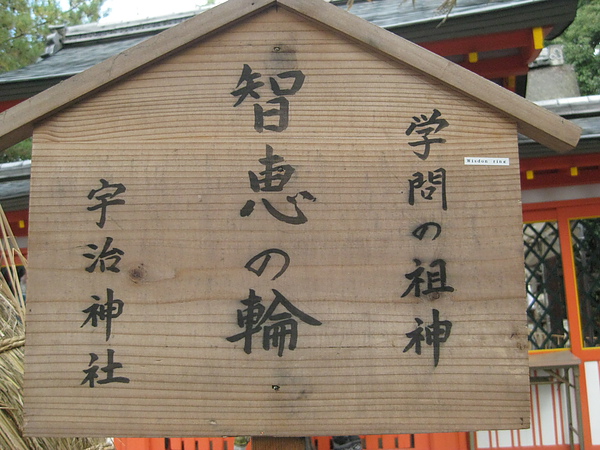 学問の祖神
智恵の輪
宇治神社